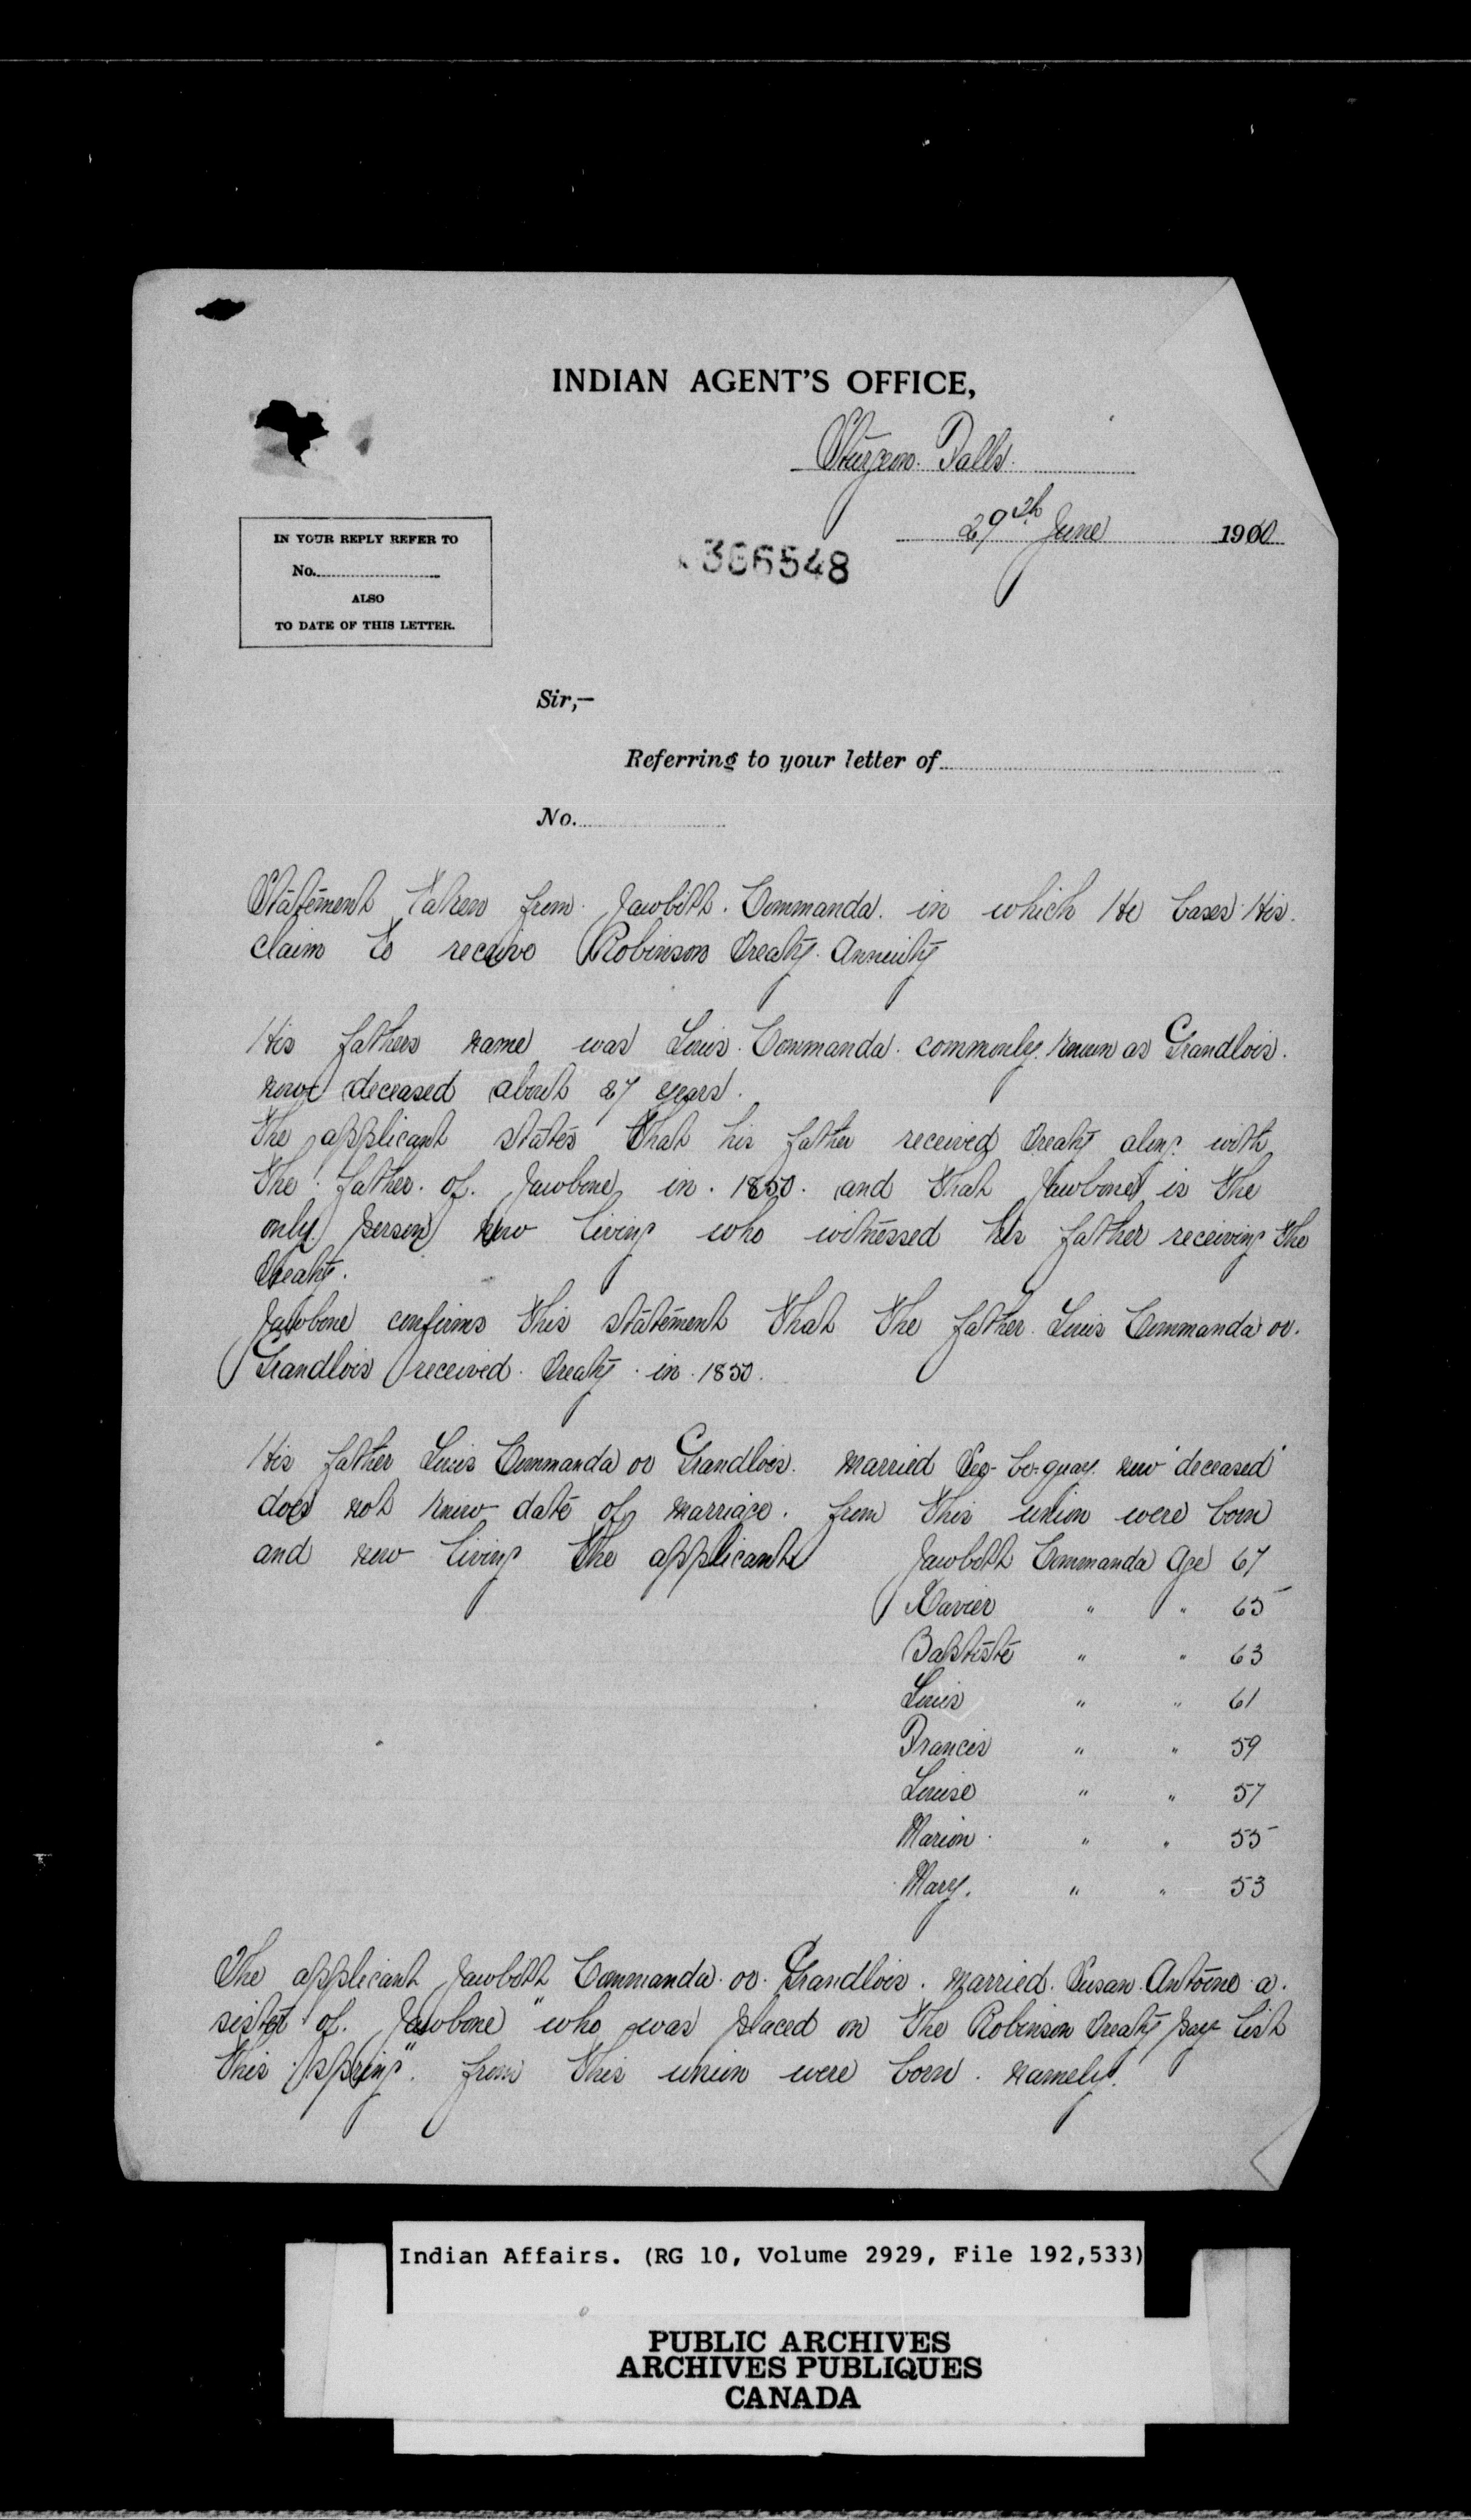 INDIAN AGENT'S OFFICE,
Sturgeon Falls.
29th June 1900
366548
IN YOUR REPLY REFER TO
No.
ALSO
TO DATE OF THIS LETTER.
Sir,—
Referring to your letter of
No.
Statement taken from Jawbith. Commanda. in which He bases His.
claim to receive Robinson Treaty. Annuity
His fathers name was Louis. Commanda. commonly known as Grandlois.
now deceased about 27 years.
The applicant states that his father received Treaty along with
the father. of. Jawbone in. 1850. and that Jawbone is the
only person now living who witnessed his father receiving the
Treaty.
Jawbone confirms this statement that the father Louis Commanda or.
Grandlois received. Treaty. in. 1850.
His father Louis Commanda or Grandlois. married now "deceased"
does not know date of marriage. from this union were born
and now living the applicant Jawbith Commanda Age 67
Xavier " " 65
Baptiste " " 63
Louis " " 61
Francis " " 59
Louise " " 57
Marion. " " 55
Mary. " " 53
The applicant Jawbith Commanda. or. Grandlois. married. Susan. Antoine. a.
sister of. Jawbone "who was placed on the Robinson Treaty pay list
this spring". from this union were born. namely.
Indian Affairs. (RG 10, Volume 2929, File 192,533)
PUBLIC ARCHIVES
ARCHIVES PUBLIQUES
CANADA